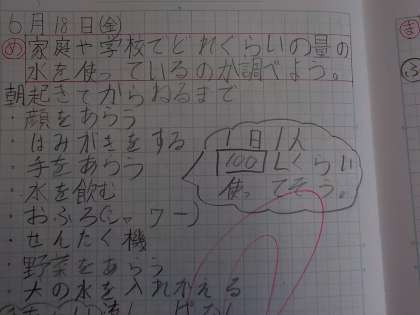 6月18日(金)
め 家庭や学校でどれくらいの量の
水を使っているのか調べよう。
朝起きてからねるまで
・顔をあらう
・はみがきをする
・手をあらう
・水を飲む
・おふろ(シャワー)
・せんたく機
・野菜をあらう
・犬の水を入れかえる
1日1人
100Lくらい
使ってそう。